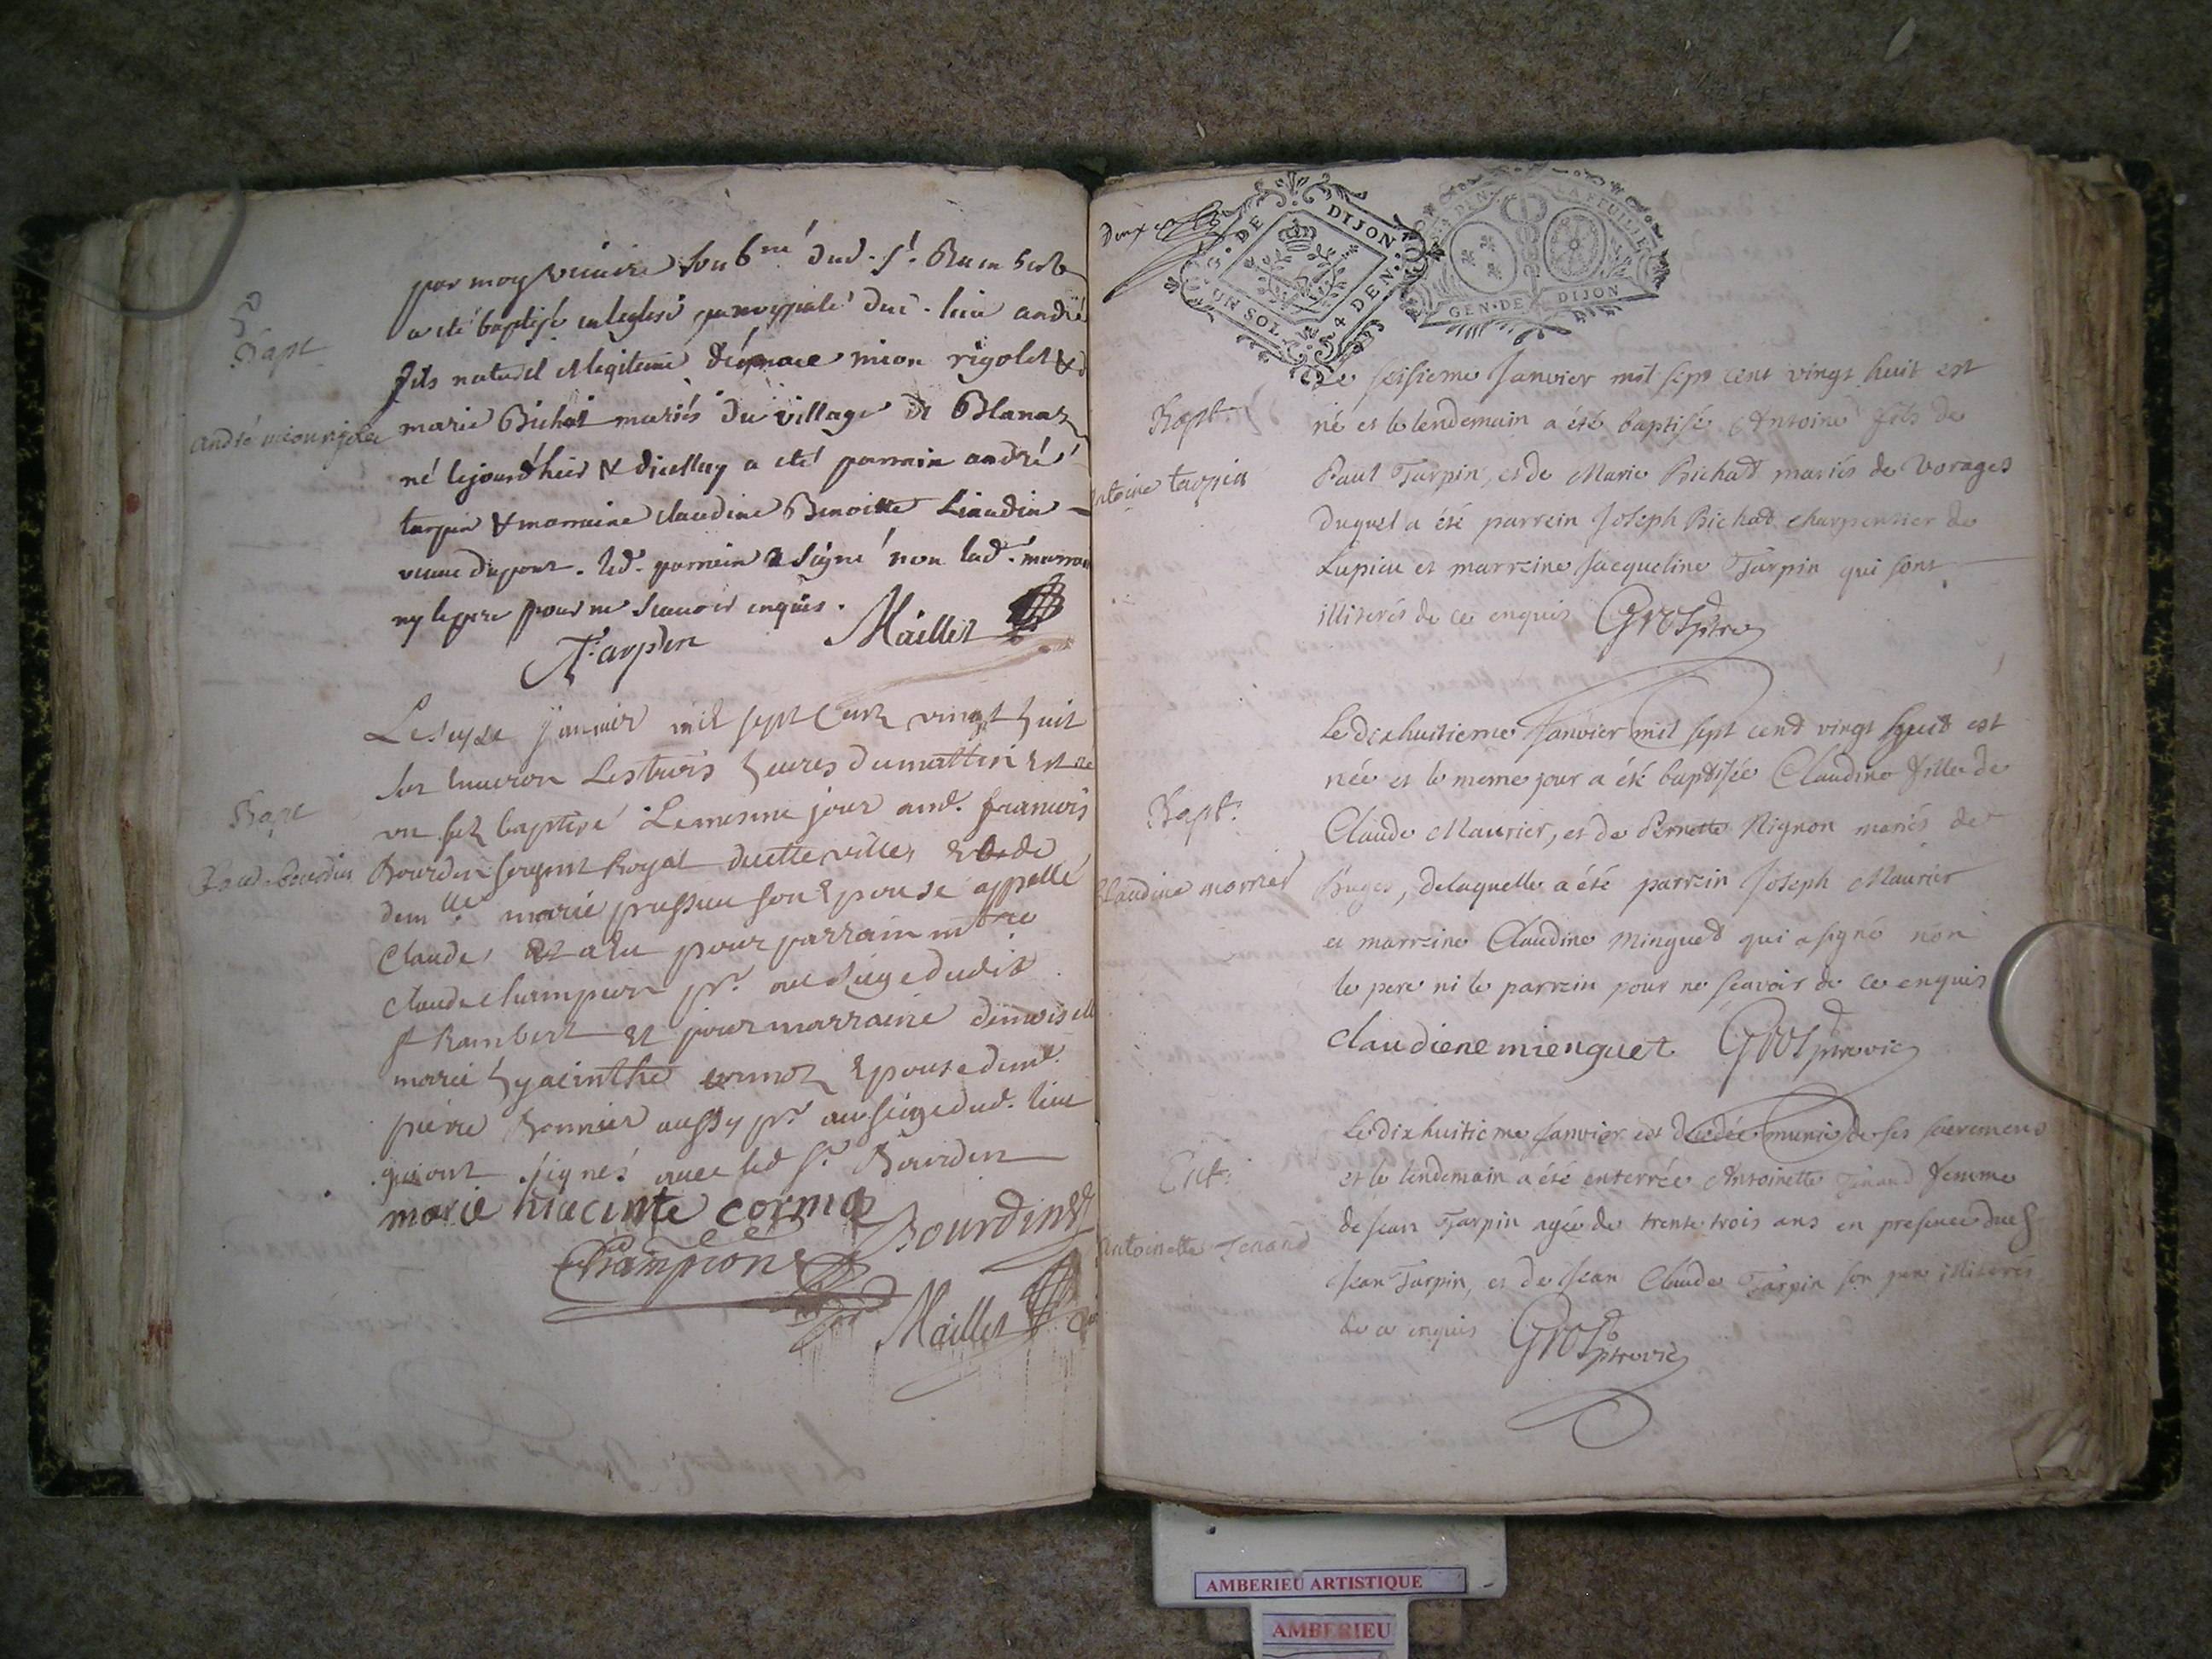 par moy vicaire sous.né dud. St. Rambert
a eté baptisé en leglise parroissiale dud. lieu andré
fils naturel et legitime mion rigolet &
marie Bichat mariés du village de Blanaz
né le jourd'hier & dicelluy a eté parrain andré
tarpin & marraine claudine Benoitte Liaudin
veuve dupont. led. parrain a signé non lad. marra
ny le pere pour ne scavoir enquis.
Tarpin Maillet
Bapt
andré mion rigolet
Le seyze janvier mil sept cent vingt huit
sur environ les trois heures du mattin est né
un filz baptisé le mesme jour a md. francois
Bourdin sergent Royal de cette ville, & de
demlle marie son Epouse appellé
Claude, Et a eu pour parrain mtre
claude champion pr. au siege dudit
st Rambert Et pour marraine demoiselle
marie hyacinthe cormoz Epouse de md.
pierre Bonnier aussy pr. au siege dud. lieu
qui ont signés avec led sr. Bourdin
marie hiacinte cormo
Bourdin
Champion
Maillet
Bapt
Claud. bourdin
Deux
G. DE DIJON
UN SOL 4 DEN.
LA FEUILLE
GEN. DE DIJON
Le seisieme Janvier mil sept cent vingt huit est
né et le lendemain a été baptisé Antoine fils de
Paul Tarpin, et de Marie Bichat mariés de Vorages
Duquel a été parrein Joseph Bichat charpentier de
Lupieu et marreine Jacqueline Tarpin qui sont
illiterés de ce enquis Gros ptre
Bapt.
antoine tarpin
Le dixhuitieme Janvier mil sept cent vingt huit est
née et le meme jour a été baptisée Claudine fille de
Claude Maurier, et de Pernette Nignon mariés de
Buges, de laquelle a été parrein Joseph Maurier
et marreine Claudine Minguet qui a signé non
le pere ni le parrein pour ne scavoir de ce enquis
claudiene mienguet Gros ptre vic
Bapt.
Claudine morrier
Le dixhuitieme Janvier est decedée munie de ses sacremens
et le lendemain a été enterrée Antoinette Tenand femme
de Jean Tarpin agée de trente trois ans en presence dud
Jean Tarpin, et de Jean Claude Tarpin son pere illiterés
de ce enquis Gros ptre vic
Ent.
Antoinette Tenand
AMBERIEU ARTISTIQUE
AMBERIEU